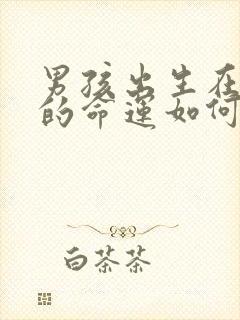 男孩出生在
的命运如何
白茶茶